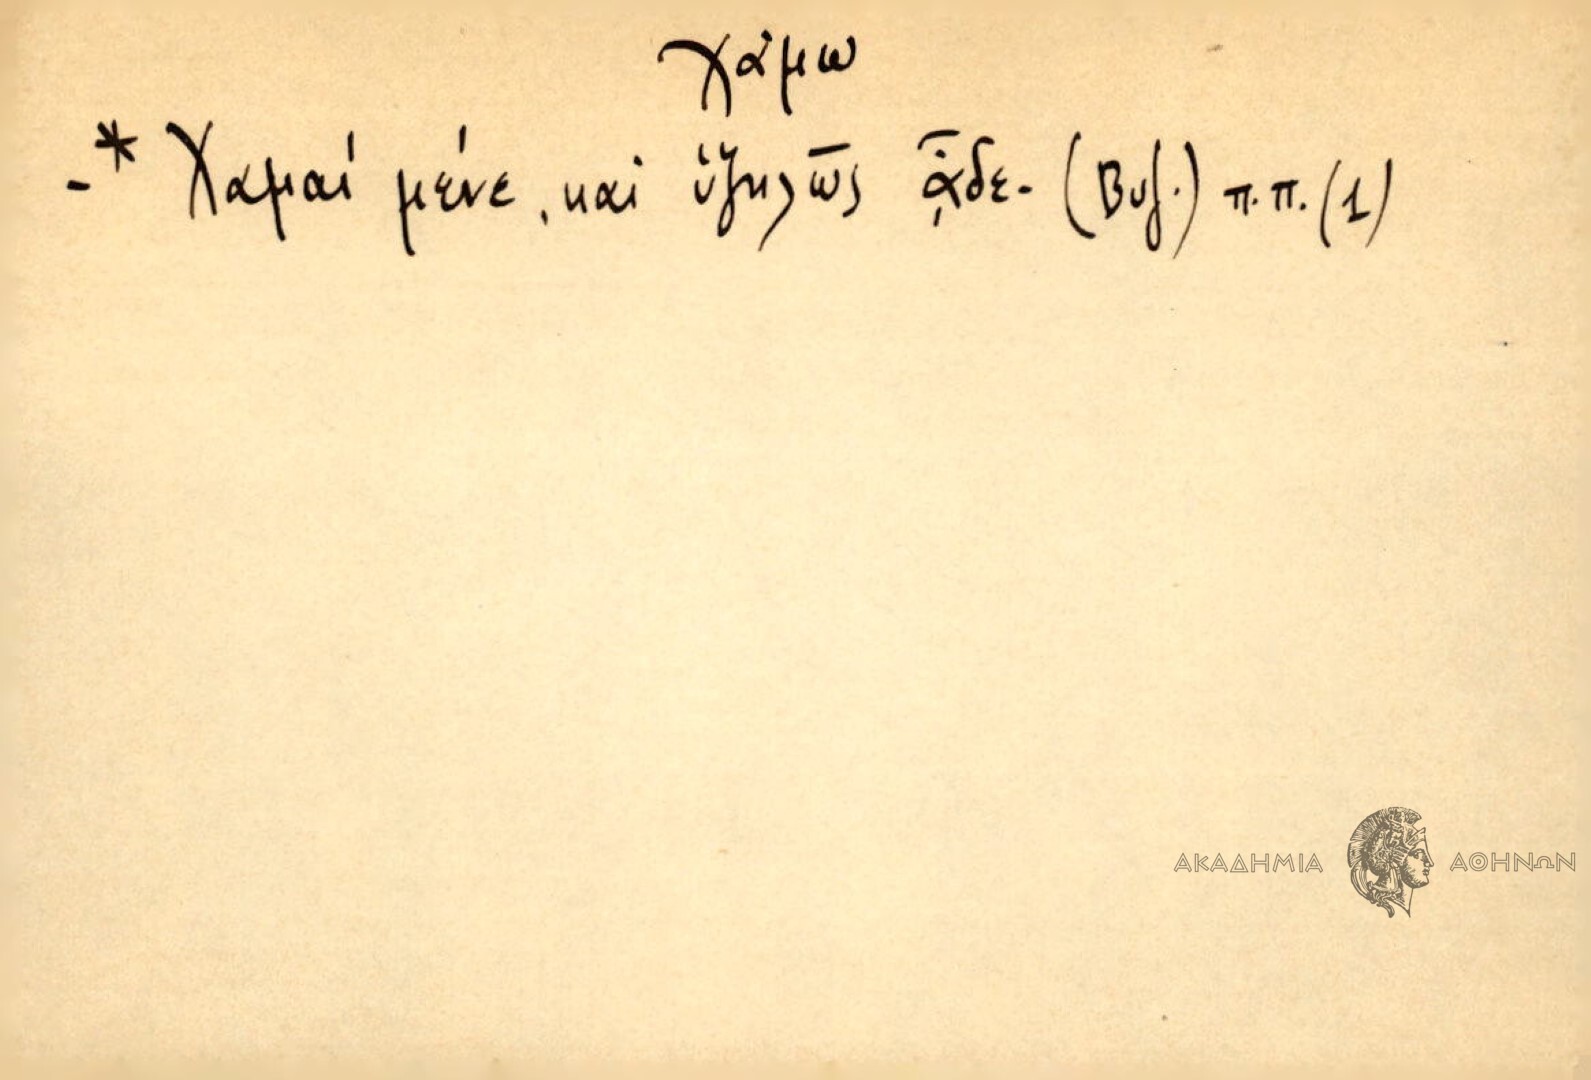 χάμω
-* Χαμαί μένε, και ὑψηλῶς ᾆδε- (Βυζ.) π.π. (1)
ΑΚΑΔΗΜΙΑ ΑΘΗΝΩΝ